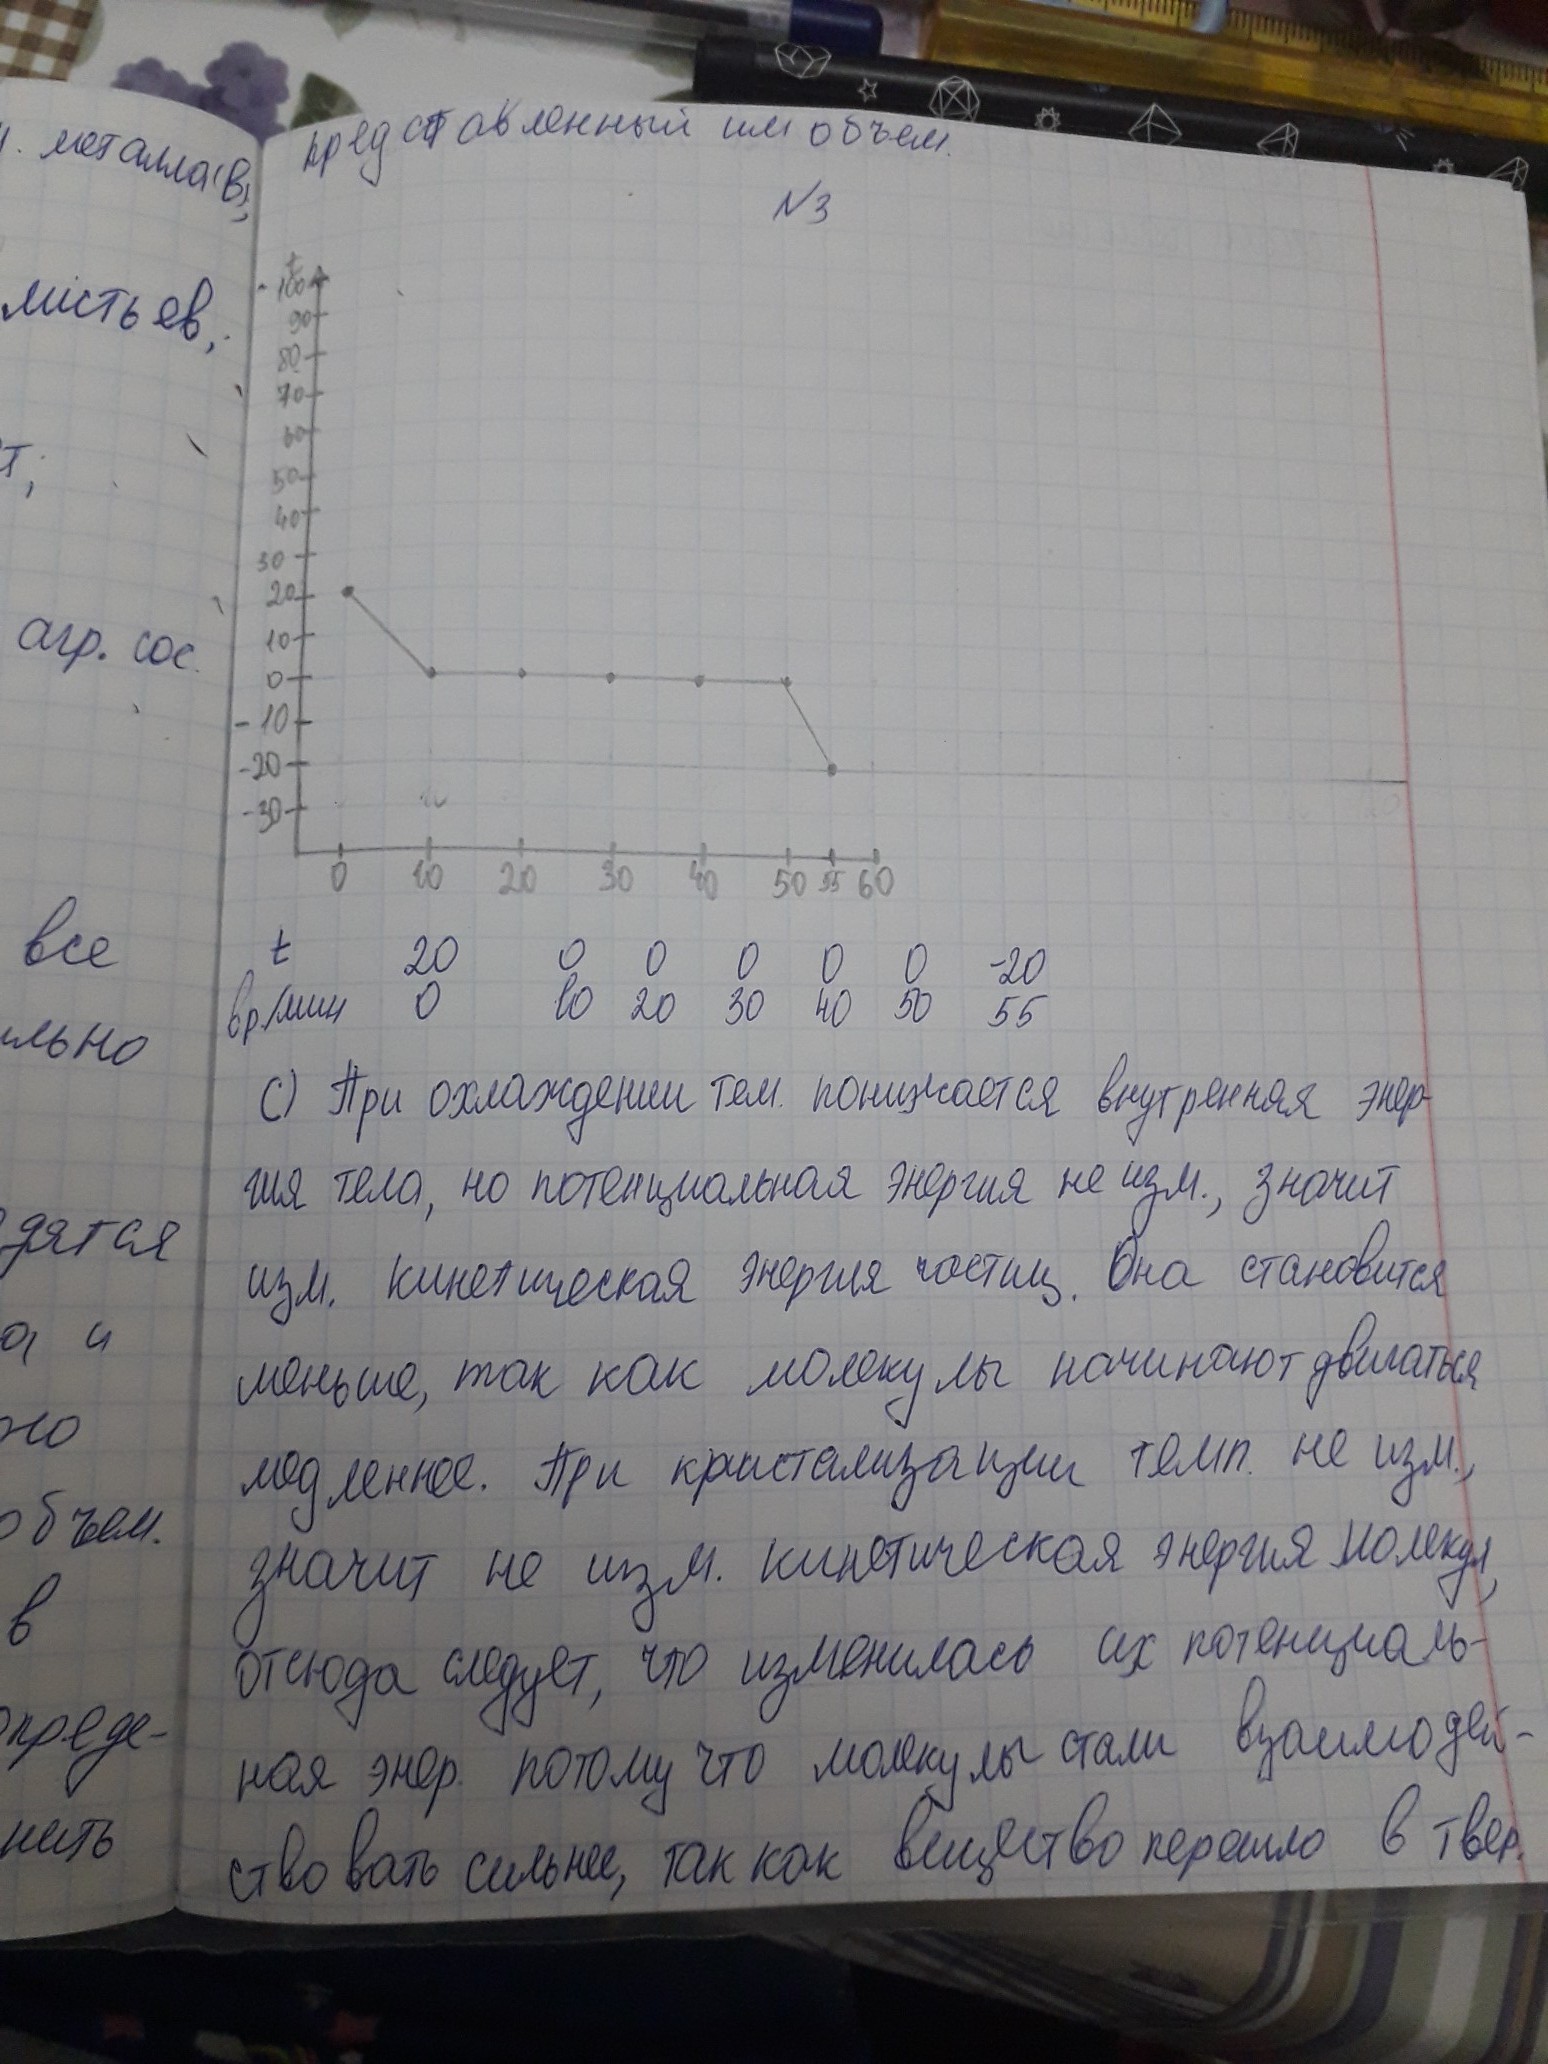 . металла(в),
листьев,
т;
агр. сос.
все
льно
дятся
а и
но
объем.
в
опреде-
нить
представленный им объем.
№3
t
100
90
80
70
60
50
40
30
20
10
0
-10
-20
-30
0 10 20 30 40 50 55 60
t 20 0 0 0 0 0 -20
вр/мин 0 10 20 30 40 50 55
с) При охлаждении тем. понижается внутренняя энер-
гия тела, но потенциальная энергия не изм., значит
изм. кинетическая энергия частиц. Она становится
меньше, так как молекулы начинают двигаться
медленнее. При кристализации темп. не изм.,
значит не изм. кинетическая энергия молекул,
отсюда следует, что изменилась их потенциаль-
ная энер. потому что молекулы стали взаимодей-
ствовать сильнее, так как вещество перешло в твер.